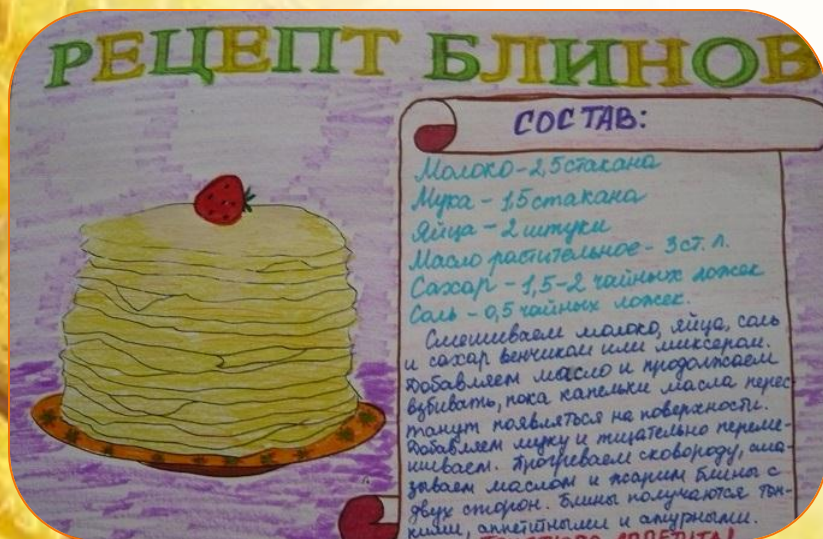 РЕЦЕПТ БЛИНОВ
СОСТАВ:
Молоко - 2,5 стакана
Мука - 1,5 стакана
Яйца - 2 штуки
Масло растительное - 3 ст. л.
Сахар - 1,5-2 чайных ложек
Соль - 0,5 чайных ложек.
Смешиваем молоко, яйца, соль
и сахар венчиком или миксером.
Добавляем масло и продолжаем
взбивать, пока капельки масла перес-
танут появляться на поверхности.
Добавляем муку и тщательно переме-
шиваем. Прогреваем сковороду, сма-
зываем маслом и жарим блины с
двух сторон. Блины получаются тон-
кими, аппетитными и ажурными.
АППЕТИТА!